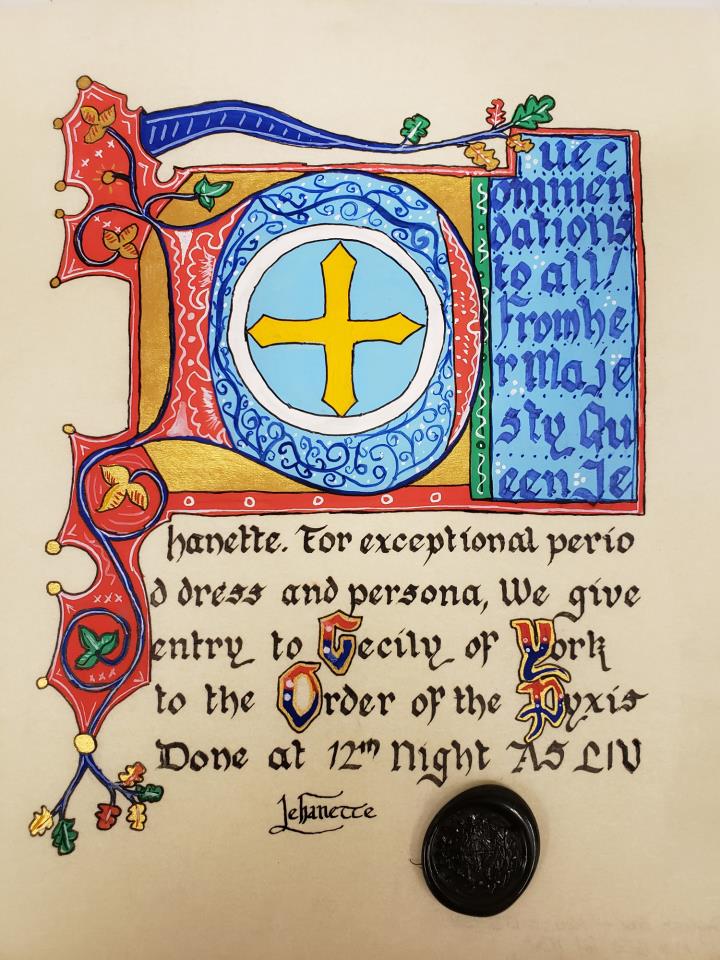 Duec
ommen
dations
to all!
From he
r Maje
sty Qu
een Je
hanette. For exceptional perio
d dress and persona, We give
entry to Cecily of York
to the Order of the Pyxis
Done at 12th Night AS LIV
Jehanette